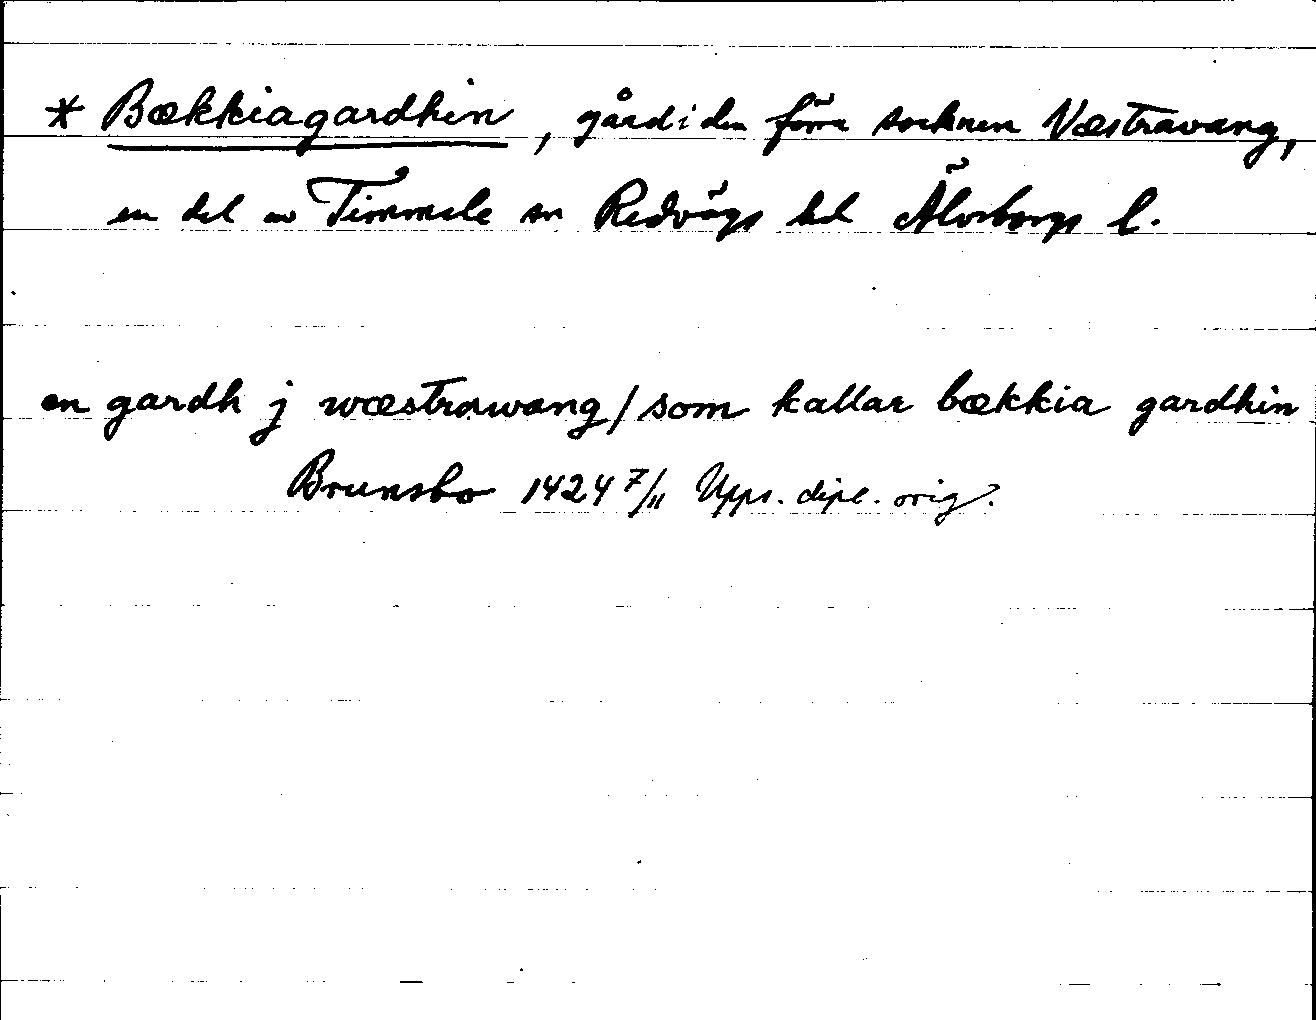 * Bækkiagardhin, gård i den förra socknen Væstravang,
en del av Timmele sn Redvägs hd Älvsborgs l.
en gardh j wæstrawang / som kallar bækkia gardhin
Brunsbo 1424 7/11 Upps. dipl. orig.